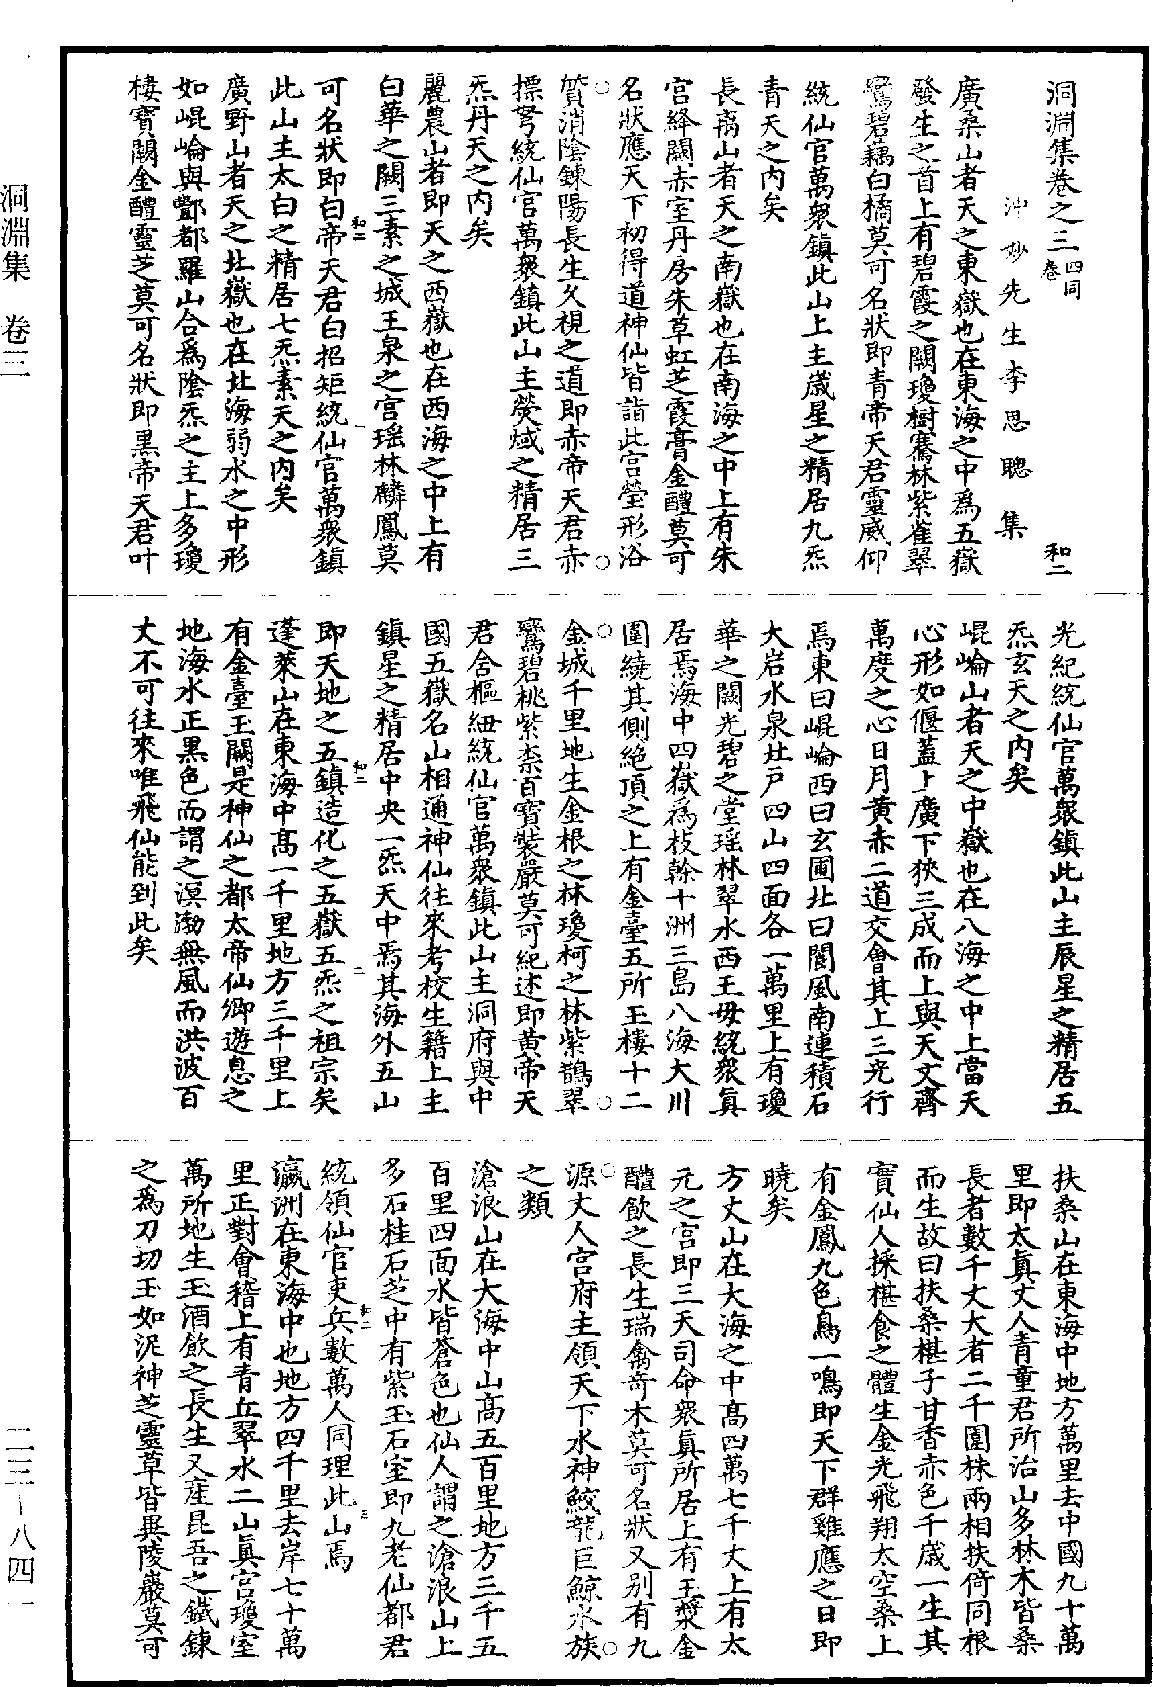 洞淵集卷之三 四同卷 和二
沖妙先生李思聰集
廣桑山者天之東嶽也在東海之中為五嶽
發生之首上有碧霞之闕瓊樹騫林紫雀翠
鸞碧藕白橘莫可名狀即青帝天君靈威仰
統仙官萬衆鎮此山上主歲星之精居九炁
青天之内矣
長离山者天之南嶽也在南海之中上有朱
宮絳闕赤室丹房朱草虹芝霞膏金醴莫可
名狀應天下初得道神仙皆詣此宮瑩形浴
質消陰鍊陽長生久視之道即赤帝天君赤
摽弩統仙官萬衆鎮此山主熒惑之精居三
炁丹天之内矣
麗農山者即天之西嶽也在西海之中上有
白華之闕三素之城玉泉之宮瑶林麟鳳莫
和二
可名狀即白帝天君白招矩統仙官萬衆鎮
此山主太白之精居七炁素天之内矣
廣野山者天之北嶽也在北海弱水之中形
如崐崘與酆都羅山合為陰炁之主上多瓊
棲寶闕金醴靈芝莫可名狀即黒帝天君叶
光紀統仙官萬衆鎮此山主辰星之精居五
炁玄天之内矣
崐崘山者天之中嶽也在八海之中上當天
心形如偃蓋上廣下狹三成而上與天文齊
萬度之心日月黄赤二道交會其上三光行
焉東曰崐崘西曰玄圃北曰閬風南連積石
大岩水泉灶戸四山四面各一萬里上有瓊
華之闕光碧之堂瑶林翠水西王母統衆真
居焉海中四嶽為枝幹十洲三島八海大川
圍繞其側絶頂之上有金臺五所玉樓十二
金城千里地生金根之林瓊柯之林紫鵲翠
鸞碧桃紫柰百寶裝嚴莫可紀述即黄帝天
君含樞紐統仙官萬衆鎮此山主洞府與中
國五嶽名山相通神仙往來考校生籍上主
鎮星之精居中央一炁天中焉其海外五山
和二 二
即天地之五鎮造化之五嶽五炁之祖宗矣
蓬萊山在東海中高一千里地方三千里上
有金臺玉闕是神仙之都太帝仙卿遊息之
地海水正黒色而謂之溟渤無風而洪波百
丈不可往來唯飛仙能到此矣
扶桑山在東海中地方萬里去中國九十萬
里即太真丈人青童君所治山多林木皆桑
長者數千丈大者二千圍株兩相扶倚同根
而生故曰扶桑椹子甘香赤色千歳一生其
實仙人採椹食之體生金光飛翔太空桑上
有金鳳九色鳥一鳴即天下群雞應之日即
曉矣
方丈山在大海之中高四萬七千丈上有太
元之宮即三天司命衆真所居上有玉漿金
醴飲之長生瑞禽奇木莫可名狀又别有九
源丈人宮府主領天下水神鮫龍巨鯨水族
之類
滄浪山在大海中山高五百里地方三千五
百里四面水皆蒼色也仙人謂之滄浪山上
多石桂石芝中有紫玉石室即九老仙都君
統領仙官吏兵數萬人同理此山焉
和二 三
瀛洲在東海中也地方四千里去岸七十萬
里正對會稽上有青丘翠水二山真宮瓊室
萬所地生玉酒飲之長生又産昆吾之鐵鍊
之為刀切玉如泥神芝靈草皆異陵巖莫可
洞淵集 卷三
二三—八四一